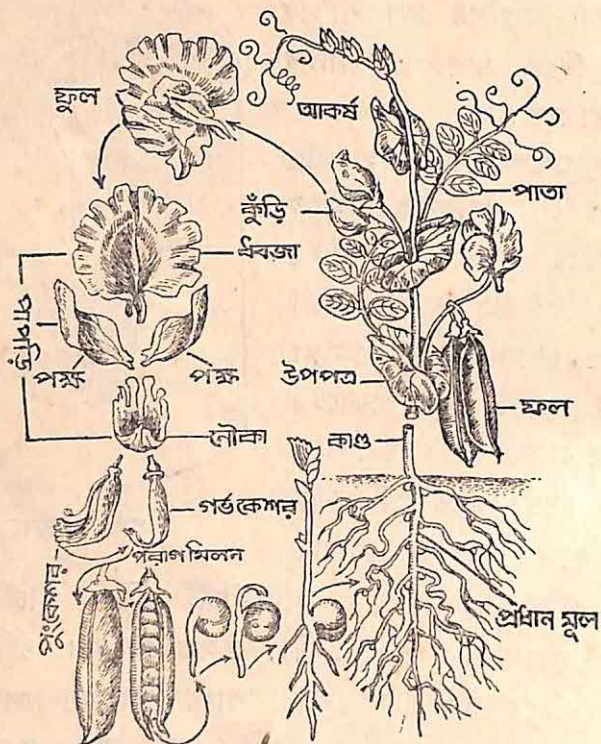 ফুল
আকর্ষ
পাতা
কুঁড়ি
ধ্বজা
পাপড়ি
পক্ষ
পক্ষ
উপপত্র
ফল
নৌকা
কাণ্ড
গর্ভকেশর
পরাগমিলন
পুংকেশর
প্রধান মূল